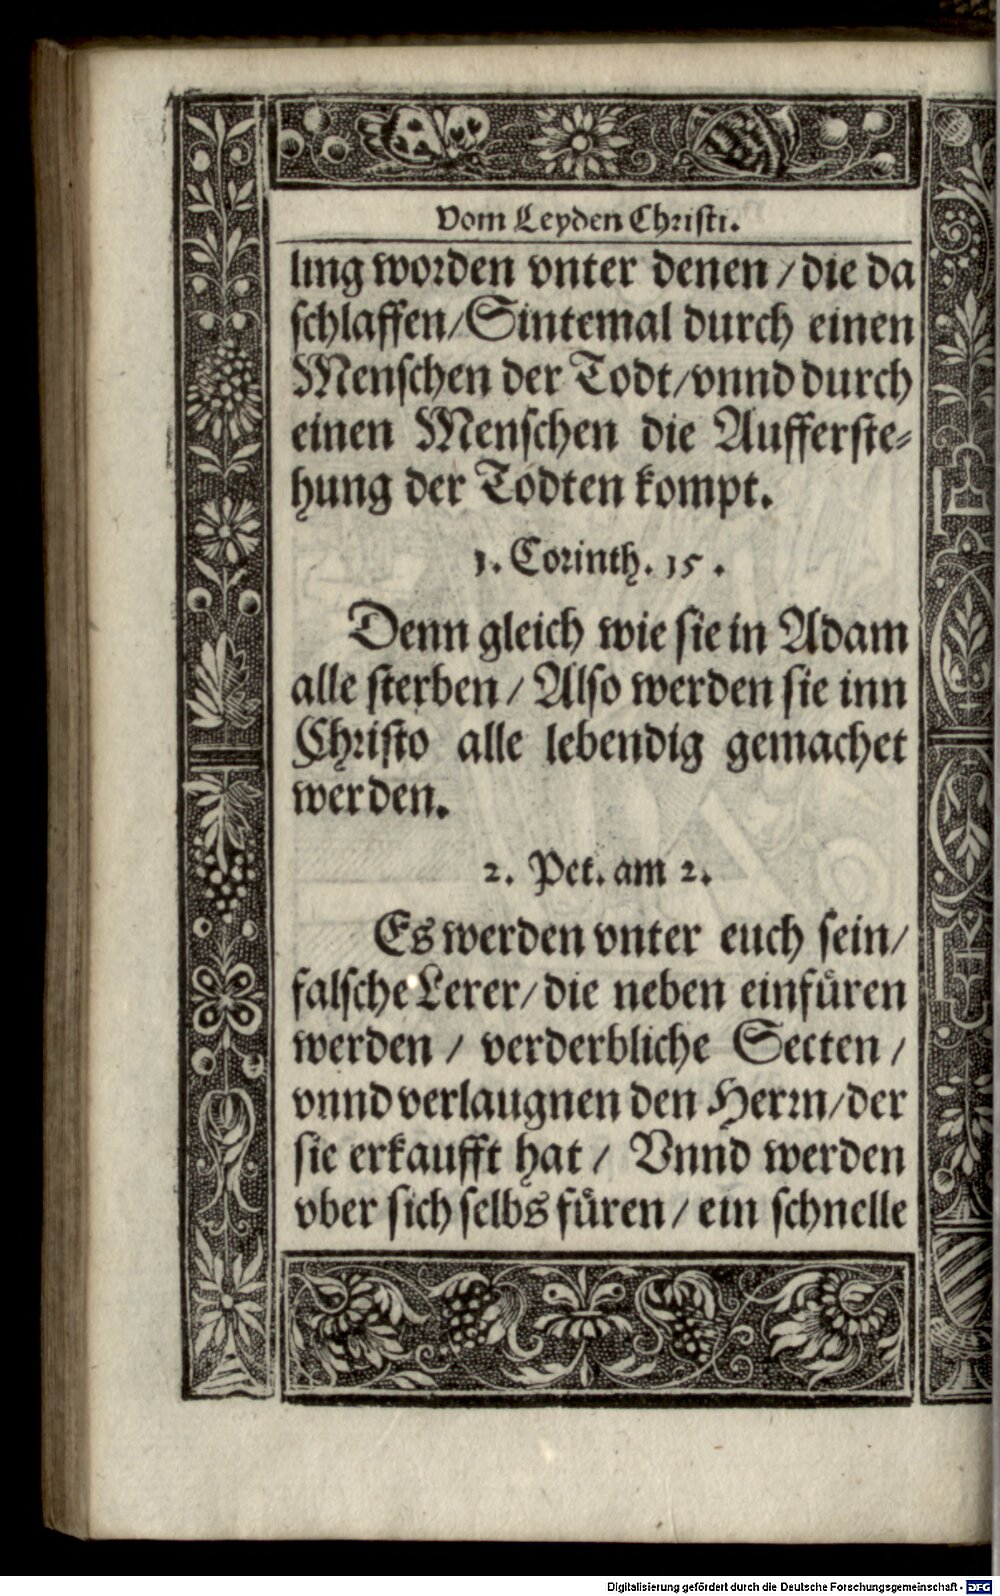 Vom Leyden Christi.
ling worden vnter denen / die da
schlaffen / Sintemal durch einen
Menschen der Todt / vnnd durch
einen Menschen die Aufferste-
hung der Todten kompt.
1. Corinth. 15.
Denn gleich wie sie in Adam
alle sterben / Also werden sie inn
Christo alle lebendig gemachet
werden.
2. Pet. am 2.
Es werden vnter euch sein /
falsche Lerer / die neben einfüren
werden / verderbliche Secten /
vnnd verlaugnen den Herrn / der
sie erkaufft hat / Vnnd werden
vber sich selbs füren / ein schnelle
Digitalisierung gefördert durch die Deutsche Forschungsgemeinschaft - DFG